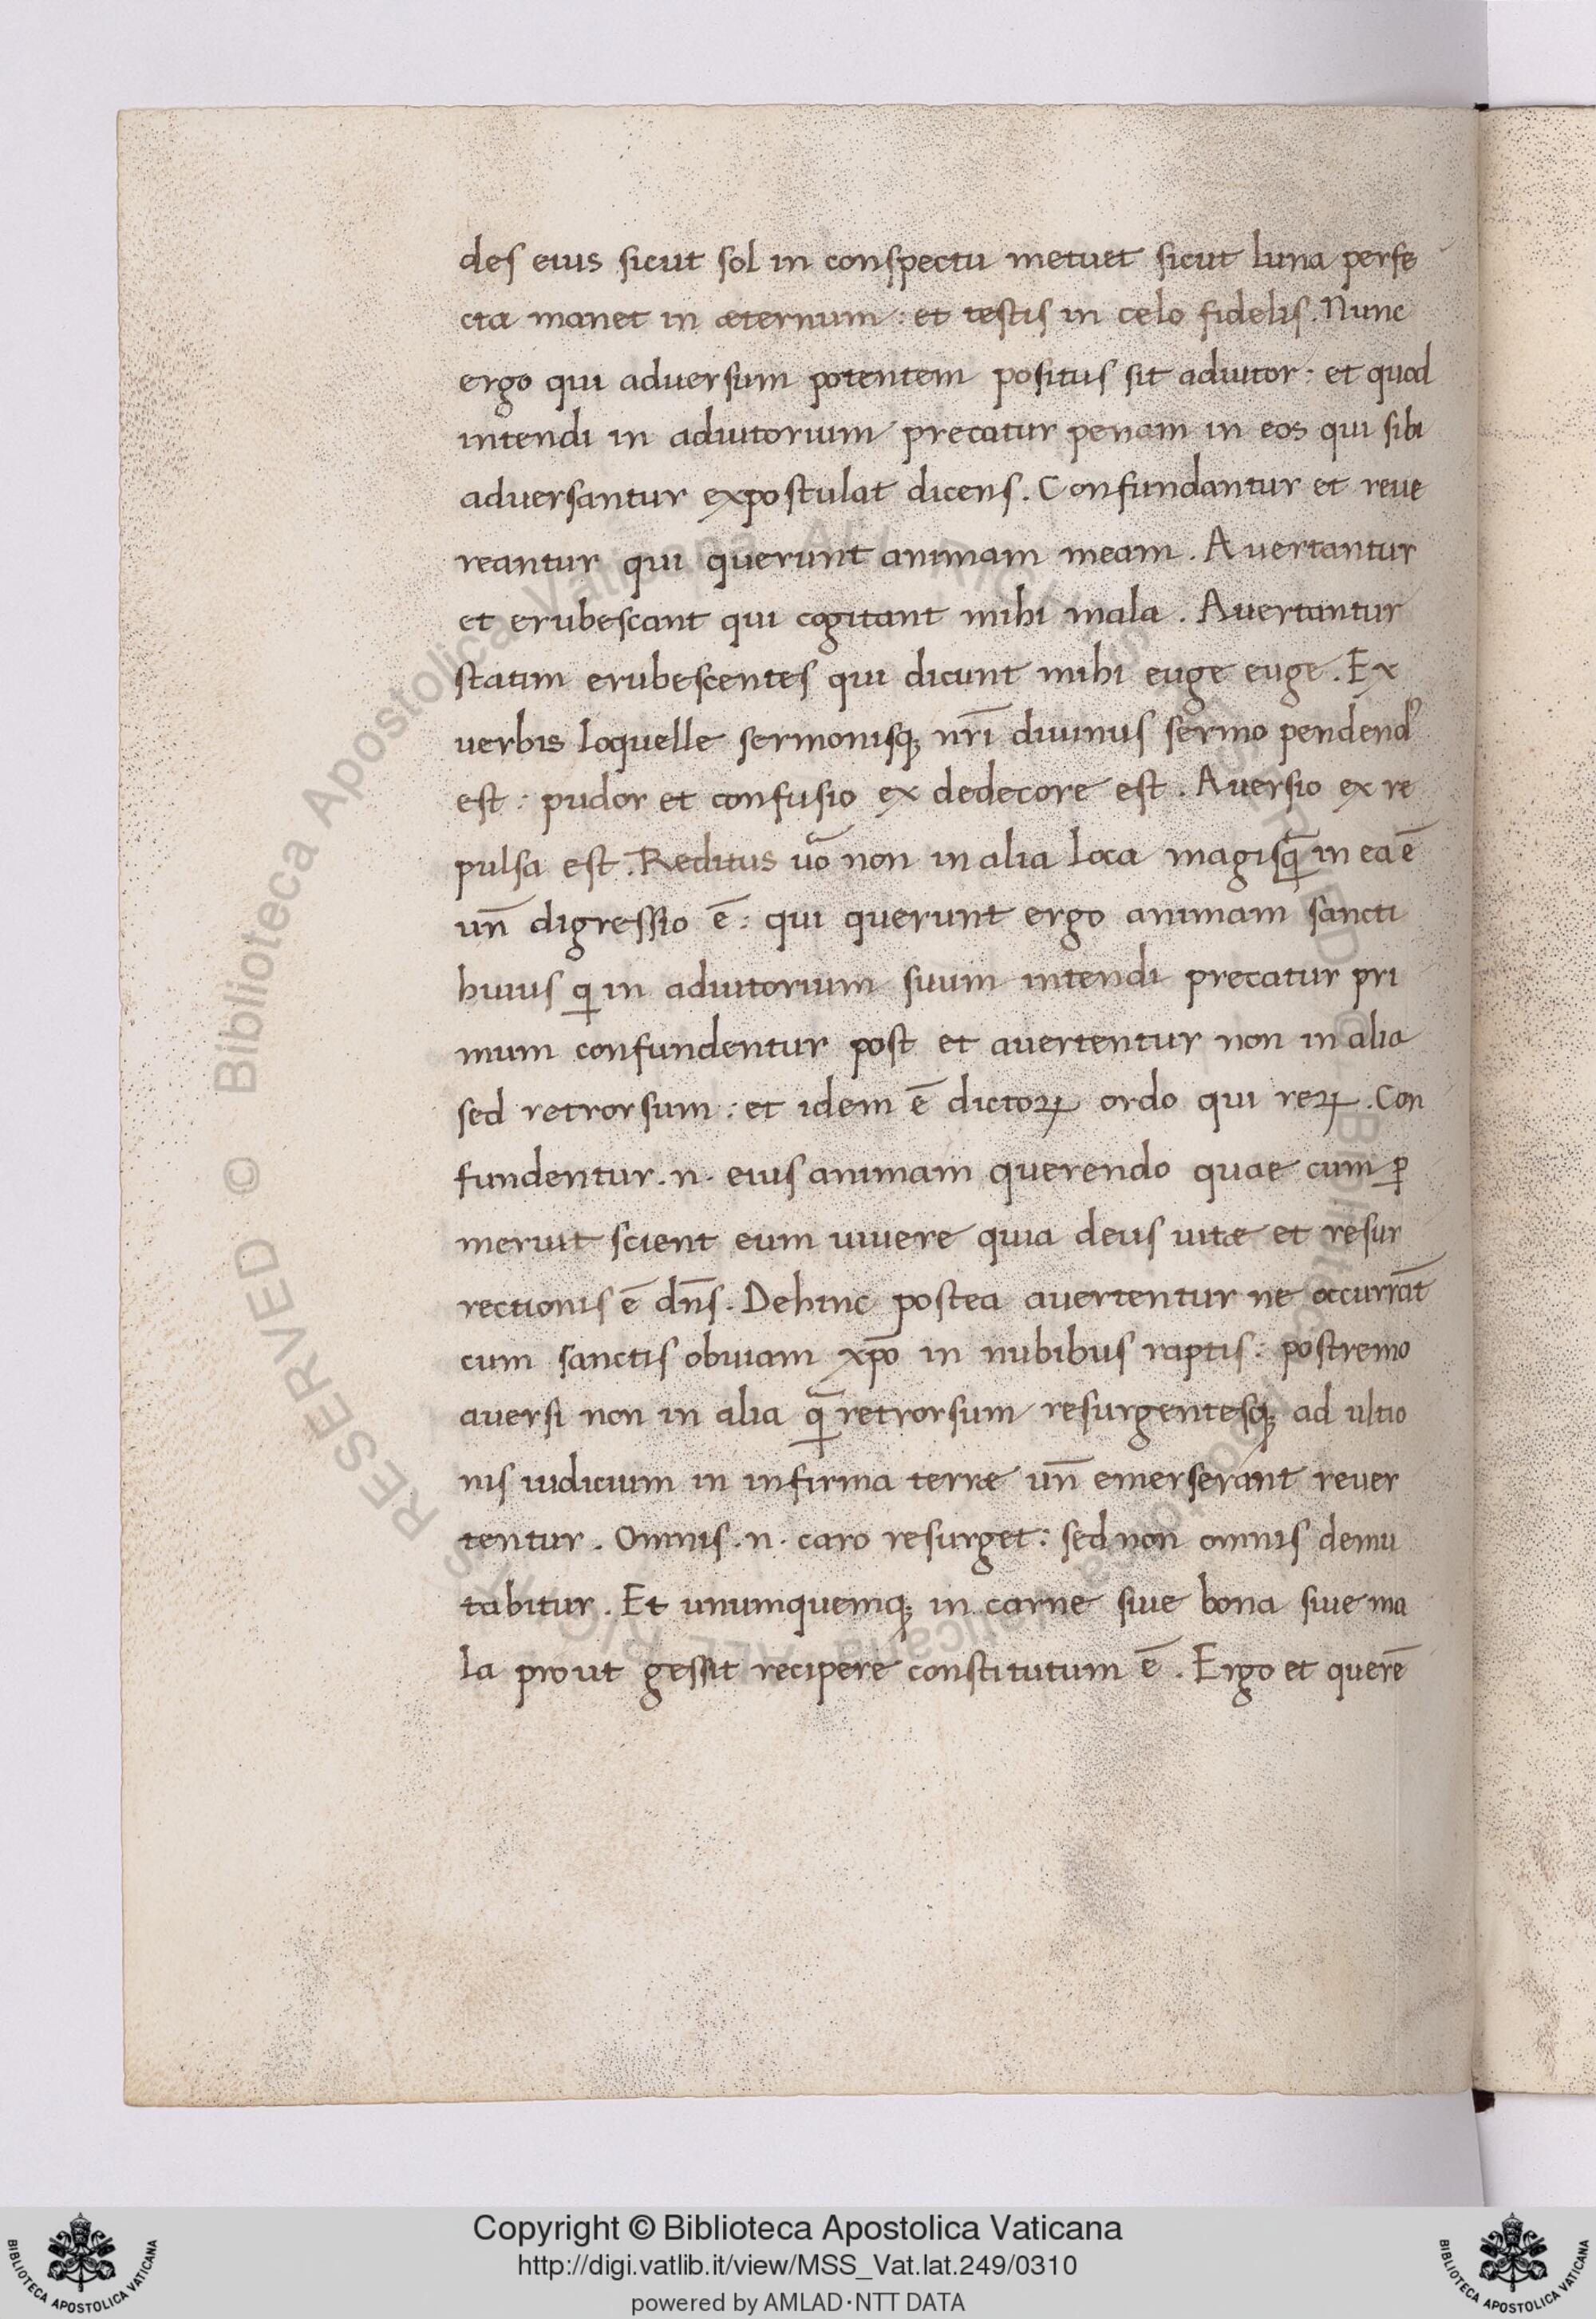 des eius sicut sol in conspectu metuet sicut luna perfe
cta manet in æternum: et testis in celo fidelis. Nunc
ergo qui aduersum potentem positus sit adiutor: et quod
intendi in adiutorium precatur penam in eos qui sibi
aduersantur expostulat dicens. Confundantur et reue
reantur qui querunt animam meam. Auertantur
et erubescant qui cogitant mihi mala. Auertantur
statim erubescentes qui dicunt mihi euge euge. Ex
uerbis loquelle sermonisqꝫ nr̄i diuinus sermo pendendꝰ
est: pudor et confusio ex dedecore est. Auersio ex re
pulsa est. Reditus uō non in alia loca magisqꝫ̄ in ea ē
un̄ digressio ē: qui querunt ergo animam sancti
huius ꝗ in adiutorium suum intendi precatur pri
mum confundentur post et auertentur non in alia
sed retrorsum: et idem ē dictoꝝ ordo qui reꝝ. Con
fundentur .n. eius animam querendo quae cum ꝑ
meruit scient eum uiuere quia deus uitæ et resur
rectionis ē dn̄s. Dehinc postea auertentur ne occurrāt
cum sanctis obuiam xp̄o in nubibus raptis: postremo
auersi non in alia ꝗ̄ retrorsum resurgentesqꝫ ad ultio
nis iudicium in infirma terræ un̄ emerserant reuer
tentur. Omnis .n. caro resurget: sed non omnis demu
tabitur. Et unumquemqꝫ in carne siue bona siue ma
la prout gessit recipere constitutum ē. Ergo et querē
Copyright © Biblioteca Apostolica Vaticana
http://digi.vatlib.it/view/MSS_Vat.lat.249/0310
powered by AMLAD·NTT DATA
BIBLIOTECA APOSTOLICA VATICANA
BIBLIOTECA APOSTOLICA VATICANA